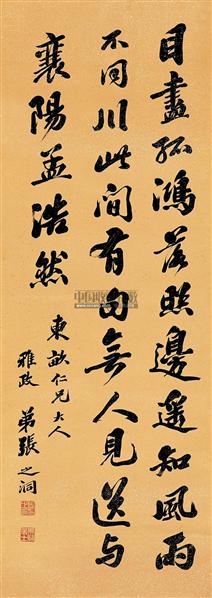 目盡孤鴻落照邊遥知風雨
不同川此間有句無人見送与
襄陽孟浩然
東畝仁兄大人
雅政 弟張之洞